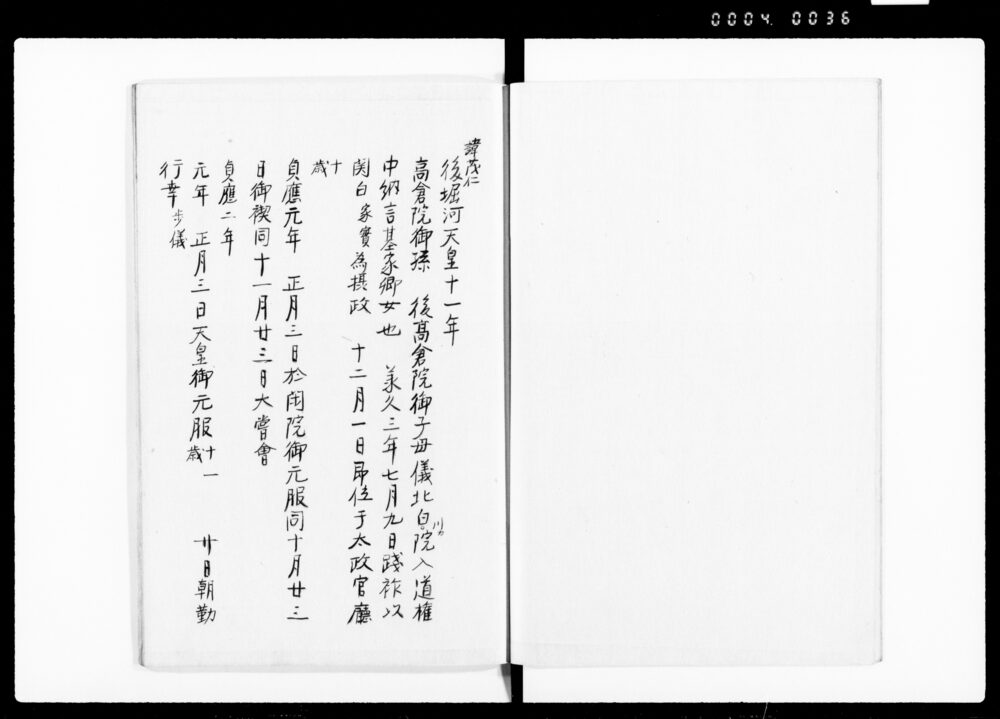 0004 0036
諱茂仁
後堀河天皇十一年
高倉院御孫 後高倉院御子母儀北白院入道権
川カ
中納言基家卿女也 承久三年七月九日踐祚以
関白家實為摂政 十二月一日即位于太政官廳
十歳
貞應元年 正月三日於閑院御元服同十月廿三
日御禊同十一月廿三日大嘗會
貞應二年
元年 正月三日天皇御元服十一歳 廿日朝勤
行幸歩儀